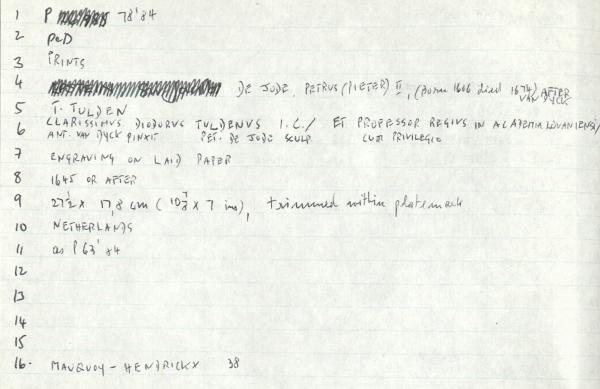 1 P 78'84
2 P&D
3 PRINTS
4 DE JODE, PETRUS (PIETER) II, (Born 1606 died 1674) AFTER VAN DYCK
5 T. TULDEN
6 CLARISSIMUS DIODORUS TULDENUS I.C./ ET PROFESSOR REGIUS IN ACADEMIA LOVANIENSI/
ANT. VAN DYCK PINXIT PET. DE JODE SCULP CUM PRIVILEGIO
7 ENGRAVING ON LAID PAPER
8 1645 OR AFTER
9 27,2 x 17,8 cm (10 7/8 x 7 ins), trimmed within platemark
10 NETHERLANDS
11 as P 63'84
12
13
14
15
16. MAUQUOY-HENDRICKX 38